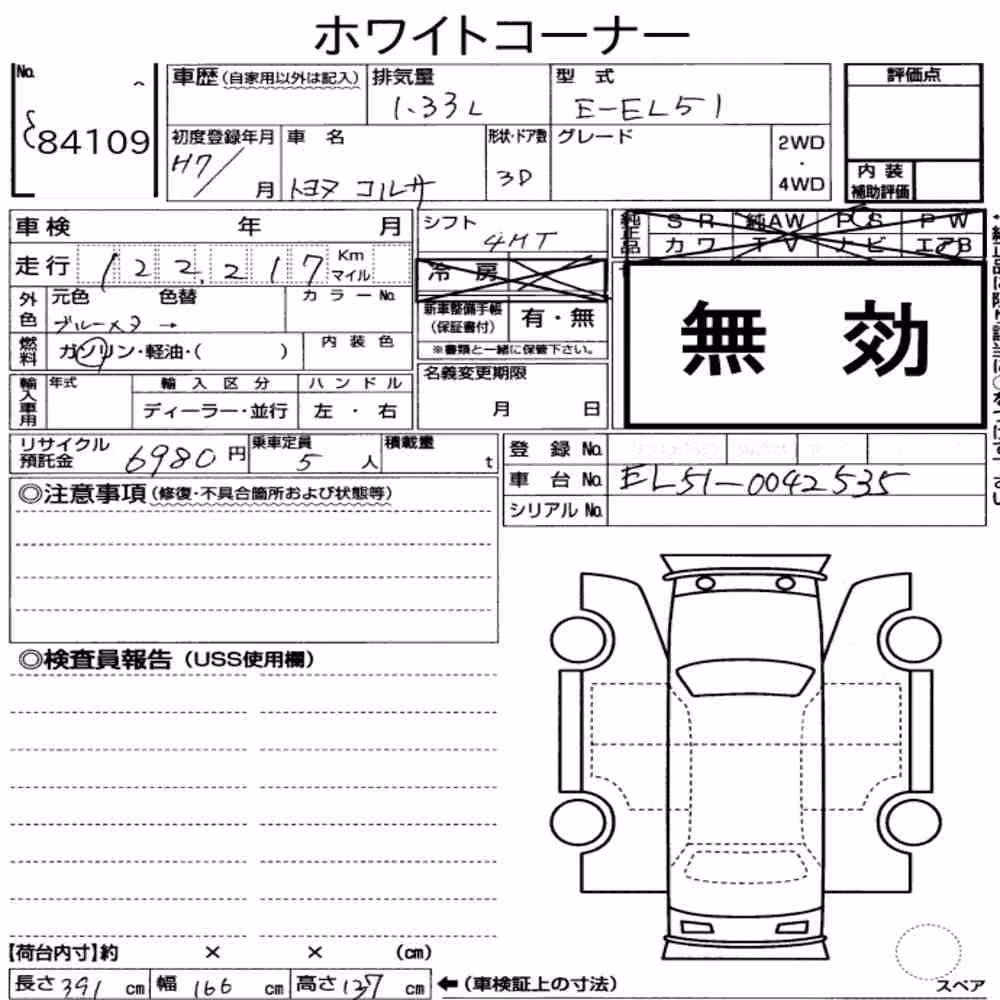 ホワイトコーナー
No. 84109
車歴(自家用以外は記入) 排気量 1.33L 型式 E-EL51 評価点
初度登録年月 H7/ 月 車名 トヨタ コルサ 形状・ドア数 3D グレード 2WD・4WD
内装補助評価
車検 年 月 シフト 4AT 純正品 SR 純AW PS PW
カワ TV ナビ エアB
走行 122,217 Km マイル 冷房
外色 元色 色替 カラーNo. 新車整備手帳(保証書付) 有・無
ブルーメタ →
※書類と一緒に保管下さい。
無効
燃料 ガソリン・軽油・( ) 内装色
名義変更期限 月 日
輸入車用 年式 輸入区分 ハンドル
ディーラー・並行 左・右
リサイクル預託金 6980円 乗車定員 5人 積載量 t 登録No.
車台No. EL51-0042535
シリアルNo.
◎注意事項(修復・不具合箇所および状態等)
◎検査員報告(USS使用欄)
【荷台内寸】約 × × (cm)
長さ391cm 幅166cm 高さ137cm ←(車検証上の寸法)
スペア